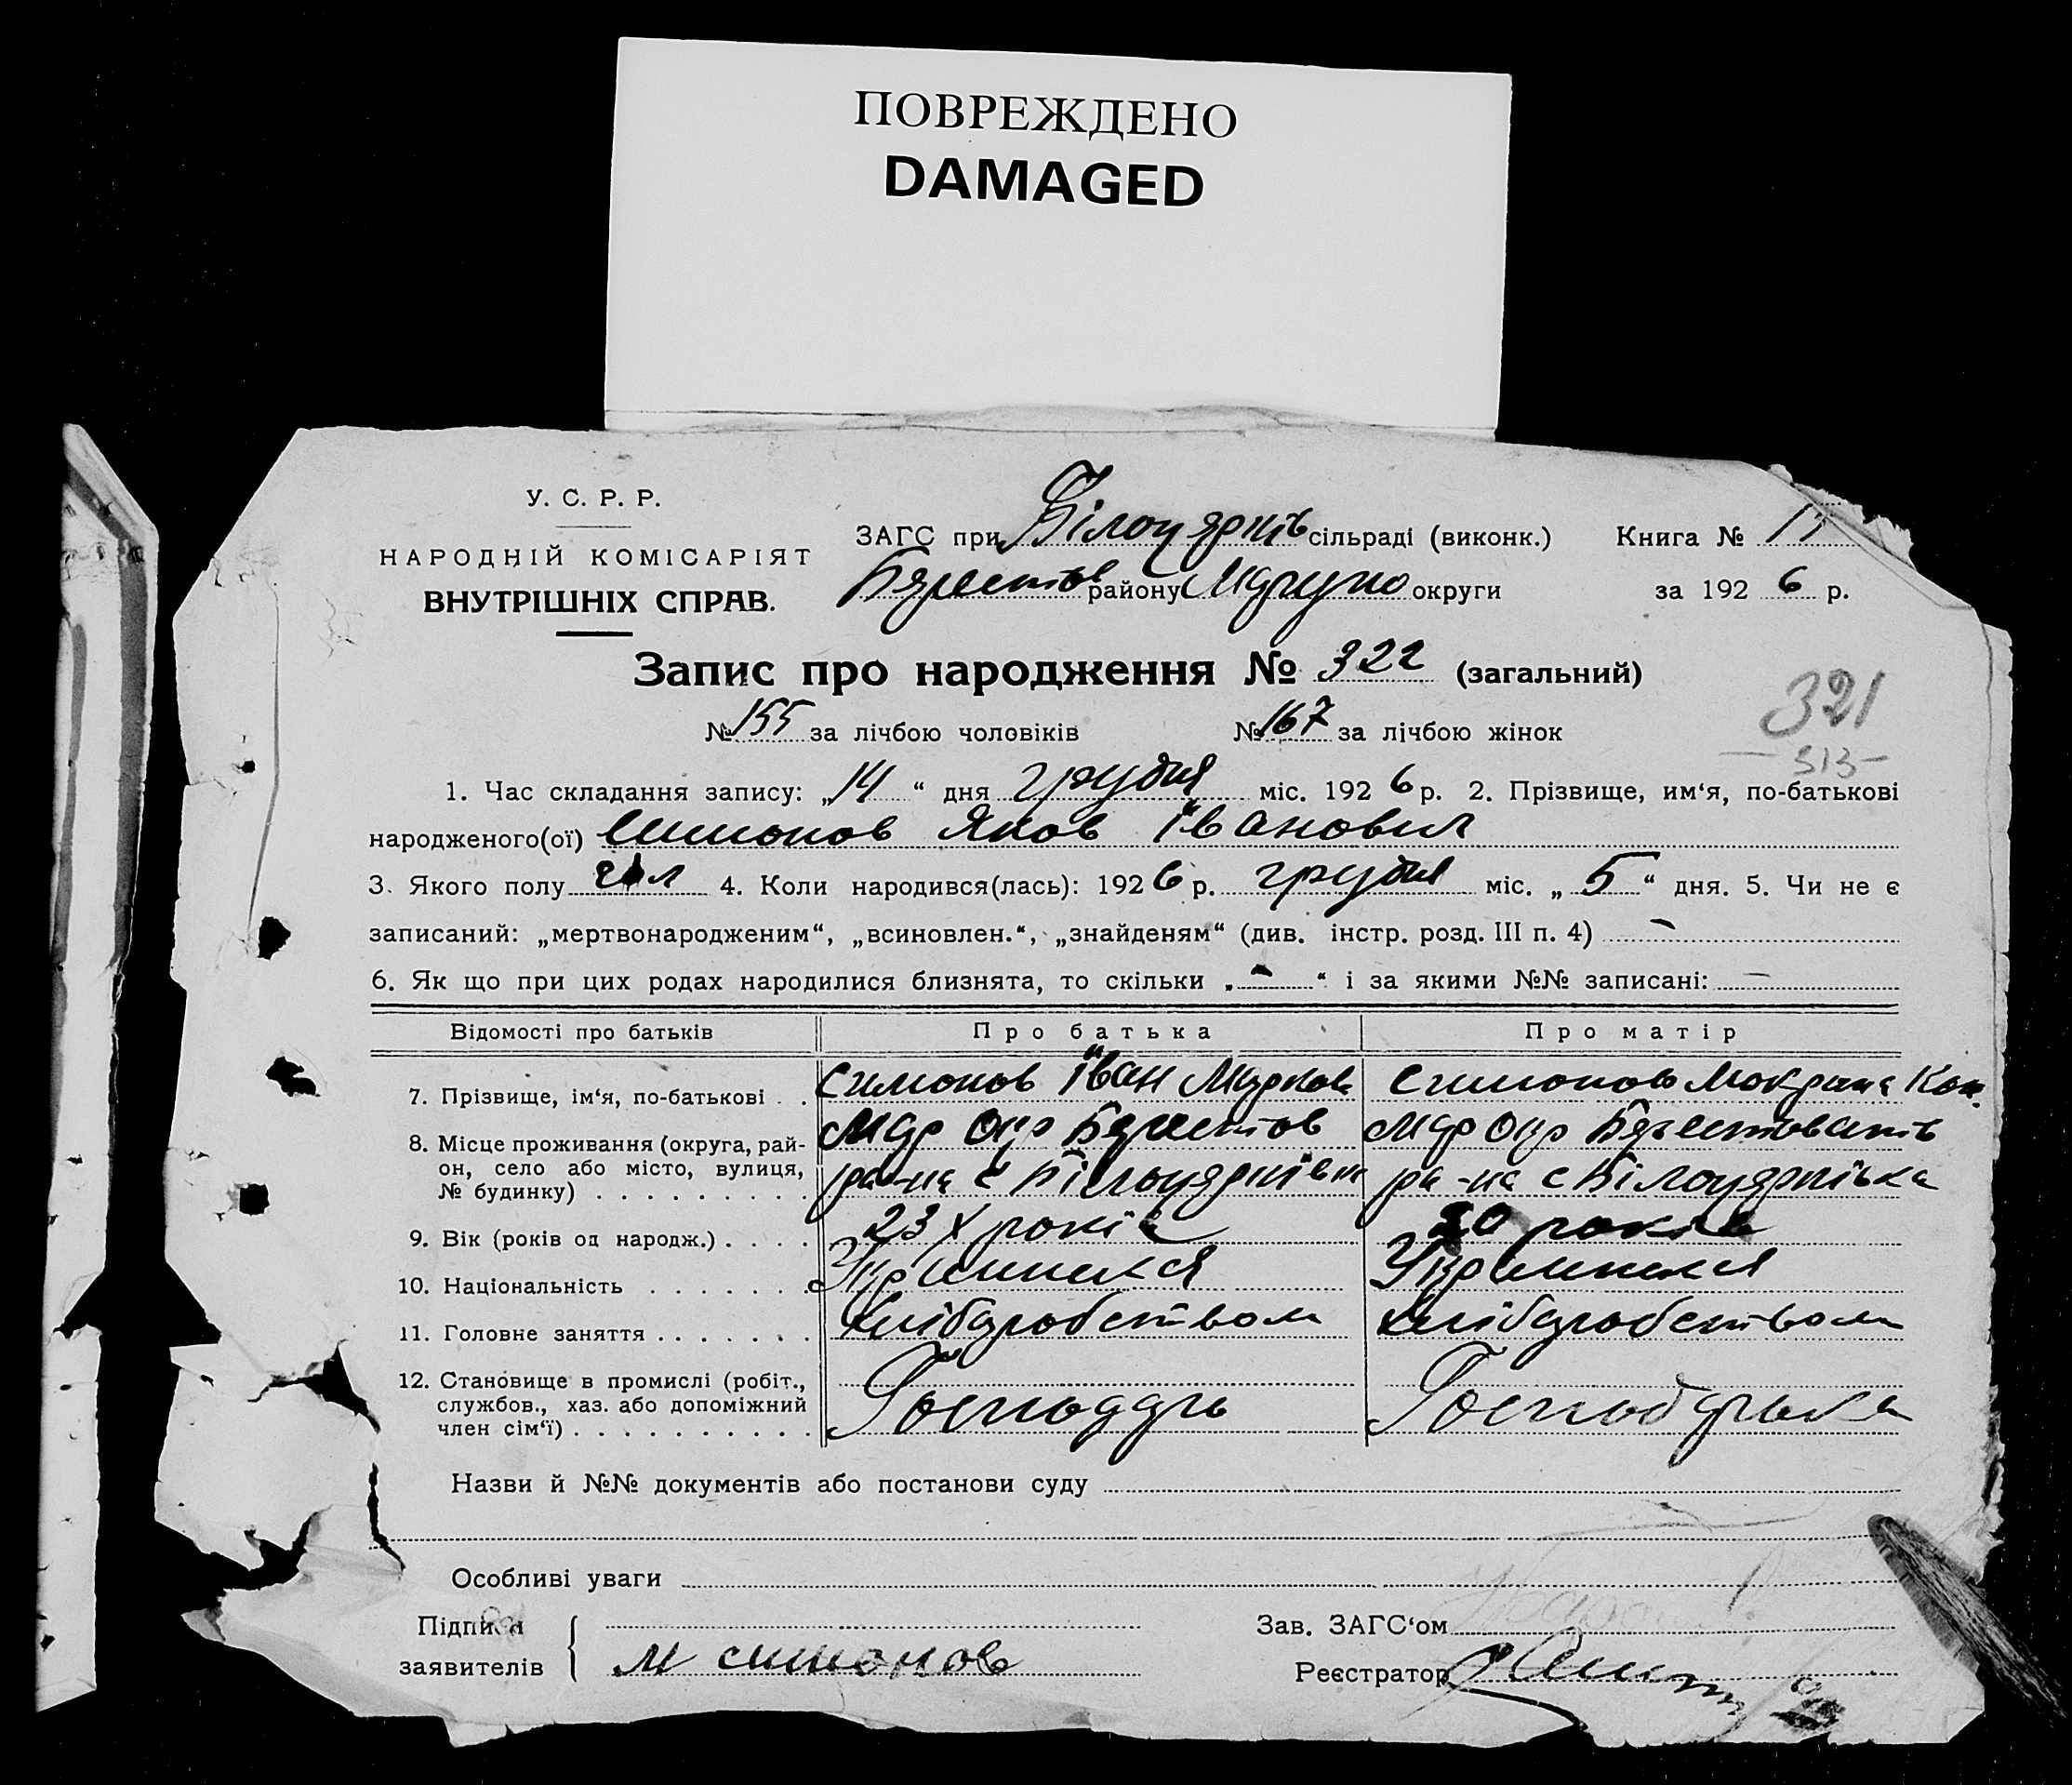 ПОВРЕЖДЕНО
DAMAGED
У. С. Р. Р.
НАРОДНІЙ КОМІСАРІЯТ
ВНУТРІШНІХ СПРАВ.
ЗАГС при Білоцерків сільраді (виконк.) Книга №
району округи за 1926 р.
Запис про народження № 322 (загальний)
321
№ 155 за лічбою чоловіків № 167 за лічбою жінок
313
1. Час складання запису: „14“ дня грудня міс. 1926 р. 2. Прізвище, им‘я, по-батькові
народженого(ої) Симонов Яков Іванович
3. Якого полу чол 4. Коли народився(лась): 1926 р. грудня міс. „5“ дня. 5. Чи не є
записаний: „мертвонародженим“, „всиновлен.“, „знайденям“ (див. інстр. розд. III п. 4) –
6. Як що при цих родах народилися близнята, то скільки „–“ і за якими №№ записані: –
Відомості про батьків Про батька Про матір
7. Прізвище, ім‘я, по-батькові . . Симонов Іван Марков Симонова Мокрина
8. Місце проживання (округа, рай- Мар Окр Берестов Мар Окр
он, село або місто, вулиця, ра-на с Білоцерківк ра-на с Білоцерківка
№ будинку) . . . . . . . . .
9. Вік (років од народж.) . . . . 23 років 20 років
10. Національність . . . . . . . Українська Українська
11. Головне заняття . . . . . . . Хліборобством Хліборобством
12. Становище в промислі (робіт.,
службов., хаз. або допоміжний Господарь Господарька
член сім‘ї) . . . . . . . . . .
Назви й №№ документів або постанови суду
Особливі уваги
Підписи Зав. ЗАГС‘ом
заявителів М Симонов Реєстратор